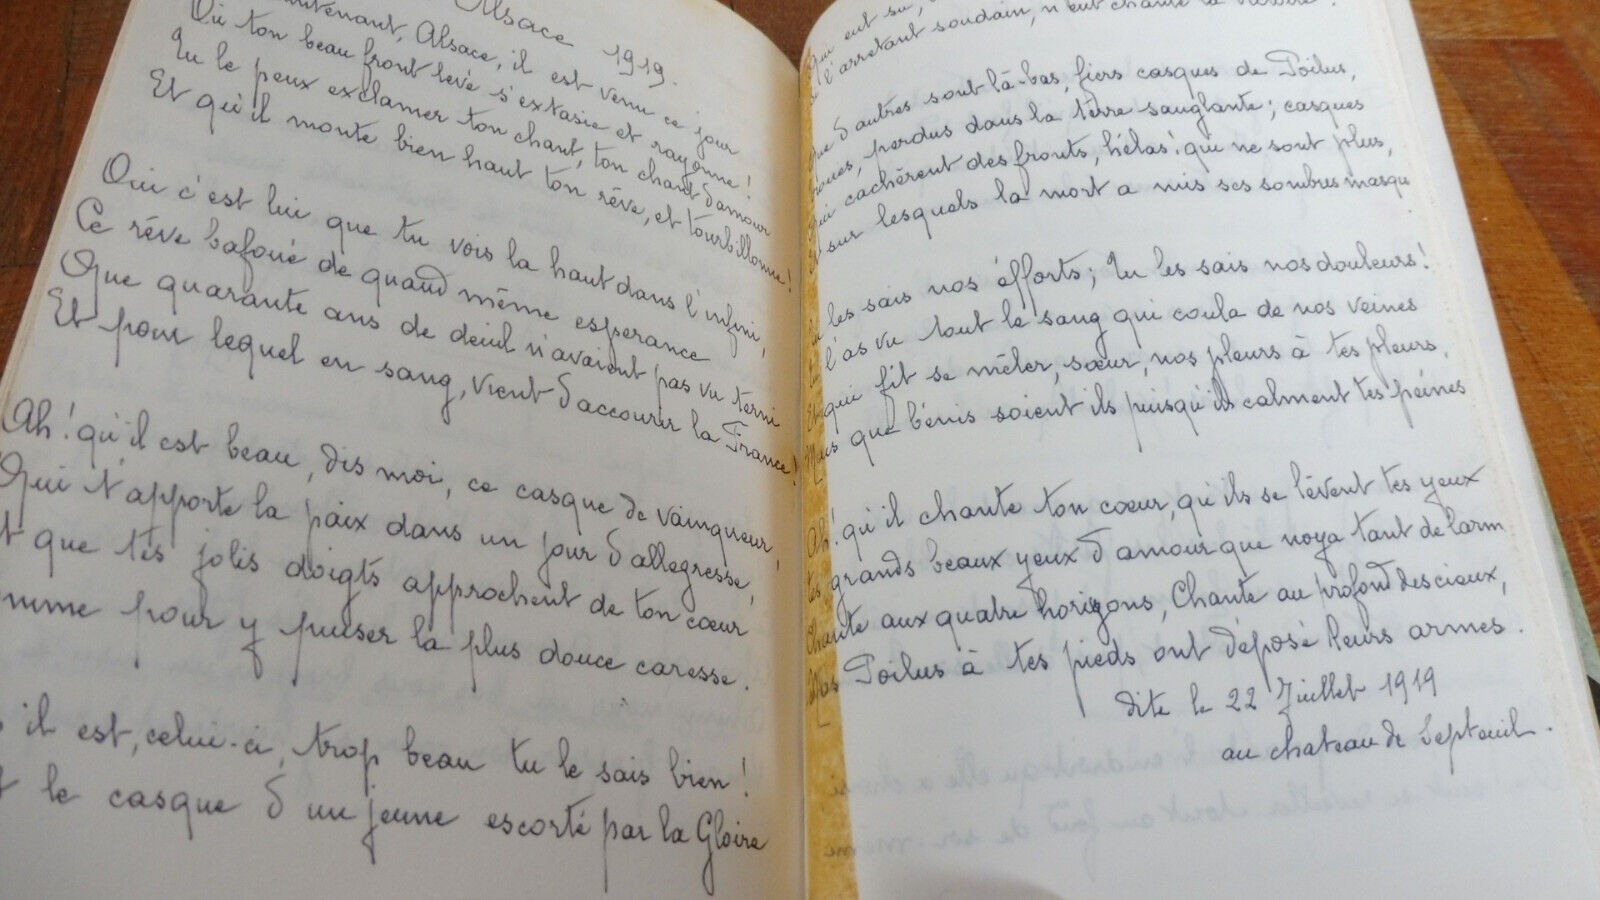 Alsace 1919.
maintenant, Alsace, il est venu ce jour
Où ton beau front levé s'extasie et rayonne!
Tu le peux exclamer ton chant, ton chant d'amour
Et qu'il monte bien haut ton rêve, et tourbillonne!
Oui c'est lui que tu vois la haut dans l'infini,
Ce rêve bafoué de quand même esperance
Que quarante ans de deuil n'avaient pas vu terni
Et pour lequel en sang, vient d'accourir la France!
Ah! qu'il est beau, dis moi, ce casque de vainqueur,
Qui t'apporte la paix dans un jour d'allegresse,
Et que tes jolis doigts approchent de ton cœur
mme pour y puiser la plus douce caresse.
il est, celui-ci, trop beau tu le sais bien!
le casque d'un jeune escorté par la Gloire
Qui eut su,
l'arrêtant soudain, n'eut chanté la
Que d'autres sont là-bas, fiers casques de Poilus,
perdus dans la terre sanglante; casques
Qui cachèrent des fronts, hélas! qui ne sont plus,
Et sur lesquels la mort a mis ses sombres masqu
Tu les sais nos éfforts; Tu les sais nos douleurs!
l'as vu tout le sang qui coula de nos veines
Et qui fit se mêler, sœur, nos pleurs à tes pleurs,
Mais que bénis soient ils puisqu'ils calment tes peines
Ah! qu'il chante ton cœur, qu'ils se lèvent tes yeux
tes grands beaux yeux d'amour que noya tant de larm
Chante aux quatre horizons, Chante au profond des cieux,
Nos Poilus à tes pieds ont déposé leurs armes.
dite le 22 Juillet 1919
au chateau de Septeuil.